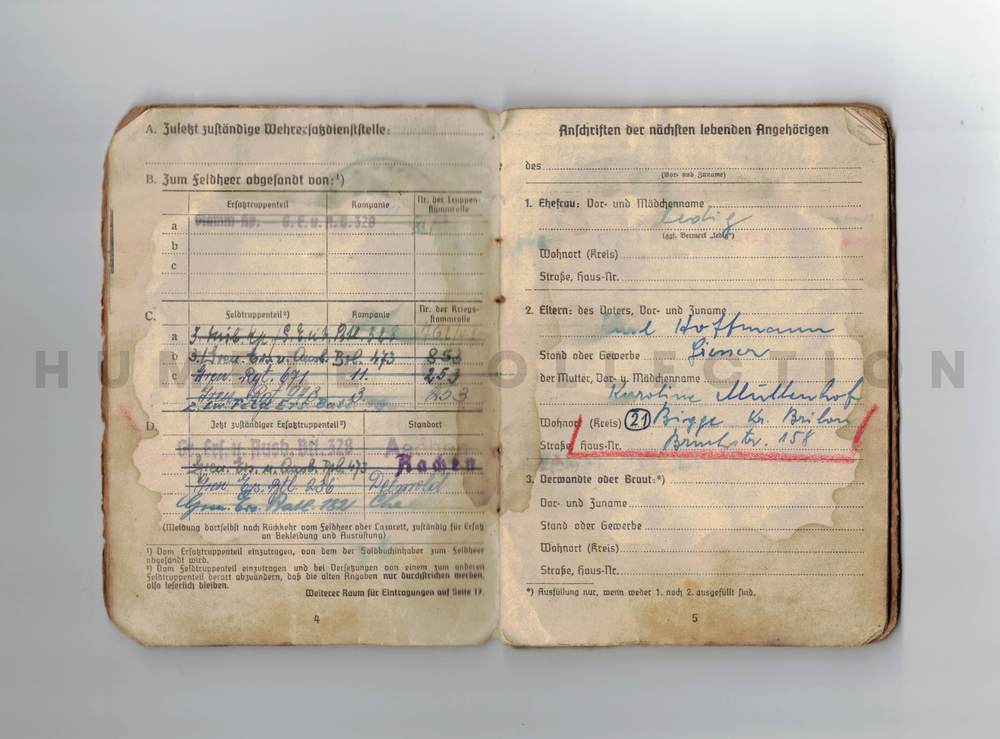 A. Zuletzt zuständige Wehrersatzdienststelle:
B. Zum Feldheer abgesandt von:¹)
Ersatztruppenteil Kompanie Nr. der Truppen-
stammrolle
a Stamm-Kp. 328
b
c
C. Feldtruppenteil²) Kompanie Nr. der Kriegs-
stammrolle
a 328
b Gren. Ers. u. Ausb. Btl. 473 853
c Gren. Rgt. 671 11. 253
D. Jetzt zuständiger Ersatztruppenteil²) Standort
Gr. Ers. u. Ausb. Btl. 328 Aachen
Gren. Ers. u. Ausb. Btl. 473 Aachen
Gren. Ers. Btl. 236 Detmold
Gren. Ers. Batl. 182
(Meldung dortselbst nach Rückkehr vom Feldheer oder Lazarett, zuständig für Ersatz
an Bekleidung und Ausrüstung)
¹) Vom Ersatztruppenteil einzutragen, von dem der Soldbuchinhaber zum Feldheer
abgesandt wird.
²) Vom Feldtruppenteil einzutragen und bei Versetzungen von einem zum anderen
Feldtruppenteil derart abzuändern, daß die alten Angaben nur durchstrichen werden,
also leserlich bleiben.
Weiterer Raum für Eintragungen auf Seite 17.
4
Anschriften der nächsten lebenden Angehörigen
des
(Vor- und Zuname)
1. Ehefrau: Vor- und Mädchenname ledig
(ggf. Vermerk „ledig“)
Wohnort (Kreis)
Straße, Haus-Nr.
2. Eltern: des Vaters, Vor- und Zuname
Hoffmann
Stand oder Gewerbe
der Mutter, Vor- u. Mädchenname
Karoline Müttenhof
Wohnort (Kreis) (21) Bigge Kr. Brilon
Straße, Haus-Nr. Bruchstr. 158
3. Verwandte oder Braut:*)
Vor- und Zuname
Stand oder Gewerbe
Wohnort (Kreis)
Straße, Haus-Nr.
*) Ausfüllung nur, wenn weder 1. noch 2. ausgefüllt sind.
5